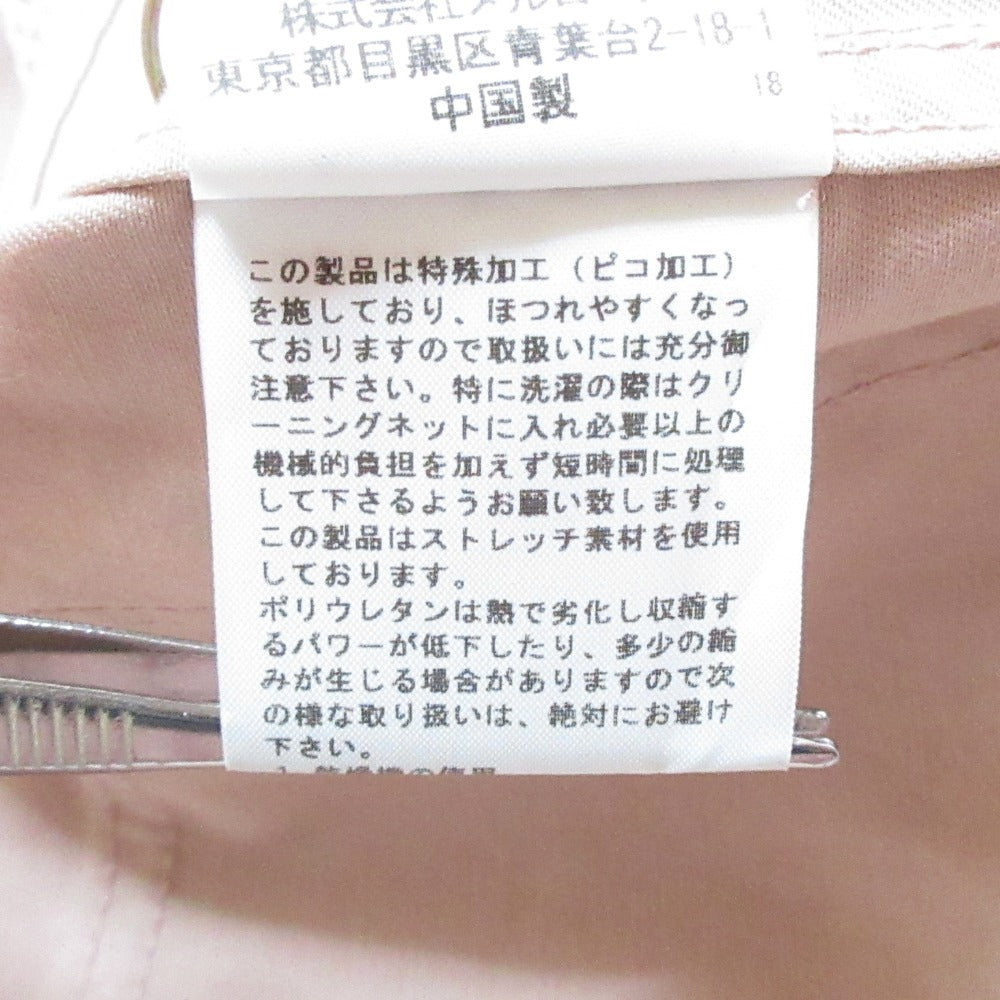 株式会社メルロー
東京都目黒区青葉台2-18-1
中国製
18
この製品は特殊加工（ピコ加工）
を施しており、ほつれやすくなっ
ておりますので取扱いには充分御
注意下さい。特に洗濯の際はクリ
ーニングネットに入れ必要以上の
機械的負担を加えず短時間に処理
して下さるようお願い致します。
この製品はストレッチ素材を使用
しております。
ポリウレタンは熱で劣化し収縮す
るパワーが低下したり、多少の縮
みが生じる場合がありますので次
の様な取り扱いは、絶対にお避け
下さい。
1.乾燥機の使用